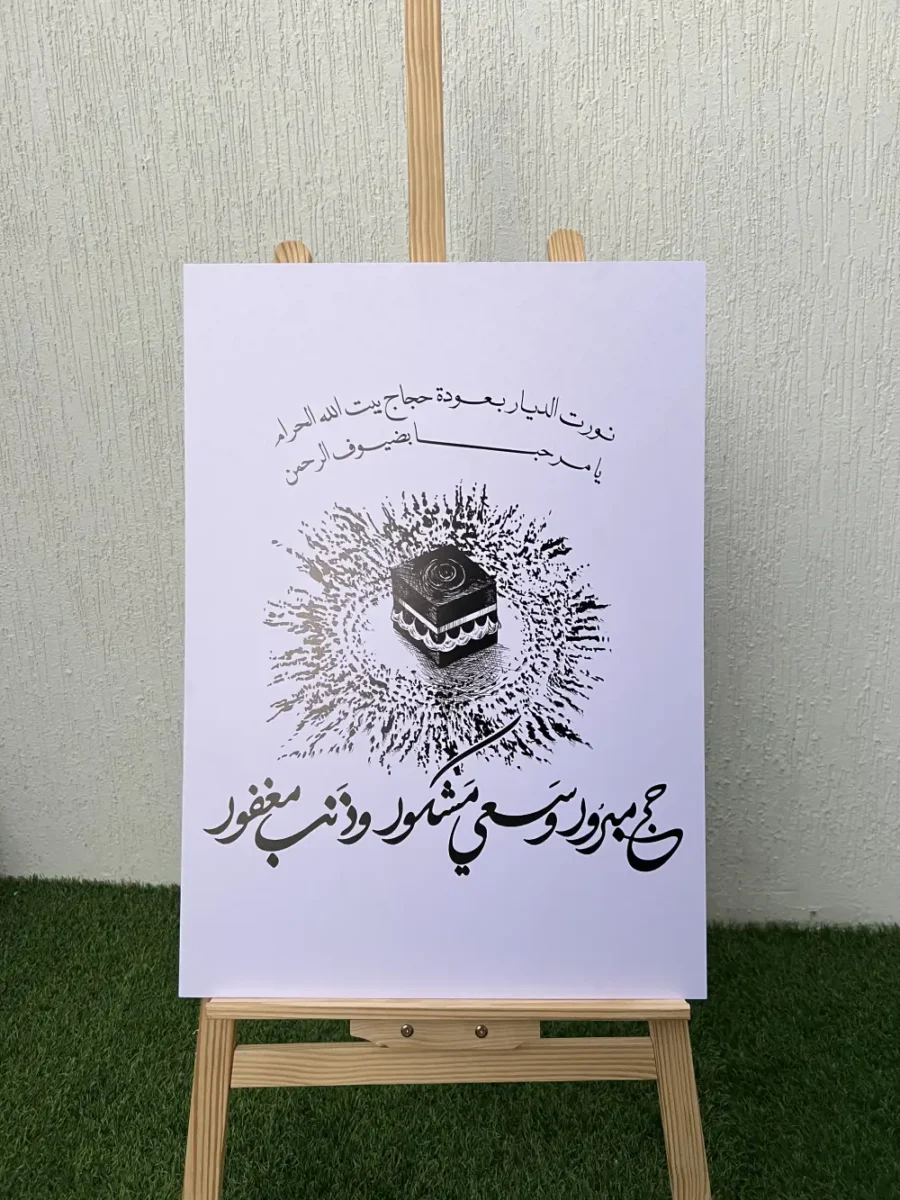 نورت الديار بعودة حجاج بيت الله الحرام
يا مرحبا بضيوف الرحمن
حج مبرور وسعي مشكور وذنب مغفور